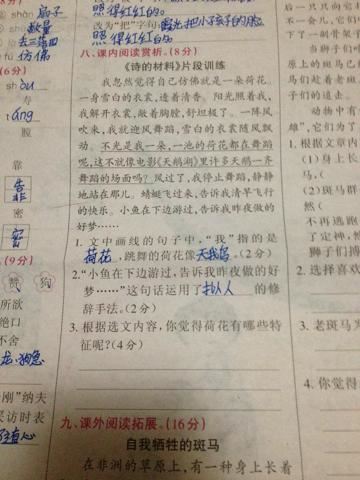 shàn
扇子
数量
去三落四
仿佛
(6分)
shòu
寿
áng
脏
靠
告
非
密
密
(9分)
赞
狗
所欲
绝口
不舍
尤、狗急
刚”纳夫
采访时表
照得红红的。
改为“把”字句：霞光把小孩子的脸
照得红红的。
八、课内阅读赏析。(8分)
《诗的材料》片段训练
我忽然觉得自己仿佛就是一朵荷花，
一身雪白的衣裳，透着清香。阳光照着我，
我解开衣裳，敞着胸膛，舒坦极了。一阵风
吹来，我就迎风舞蹈，雪白的衣裳随风飘
动。不光是我一朵，一池的荷花都在舞蹈
呢，这不就像电影《天鹅湖》里许多天鹅一齐
舞蹈的场面吗？风过了，我停止舞蹈，静静
地站在那儿。蜻蜓飞过来，告诉我清早飞行
的快乐。小鱼在下边游过，告诉我昨夜做的
好梦……
1. 文中画线的句子中，“我”指的是
荷花，跳舞的荷花像天鹅。(2分)
2.“小鱼在下边游过，告诉我昨夜做的好
梦……”这句话运用了拟人的修
辞手法。(2分)
3. 根据选文内容，你觉得荷花有哪些特
征呢？(4分)
九、课外阅读拓展。(16分)
自我牺牲的斑马
在非洲的草原上，有一种身上长着
八只狮子
不一会儿，它们
下了一副骨架子
原上的斑马已
马们趁着老
子们的追击。
动物中有
雄”，它们为了
1. 根据文章内
(1)身上长
马，(
(2)斑马
(然
不再逃跑
了定神，
狮子们搏
2. 选择喜欢
3. 老斑马为
4. 你觉得